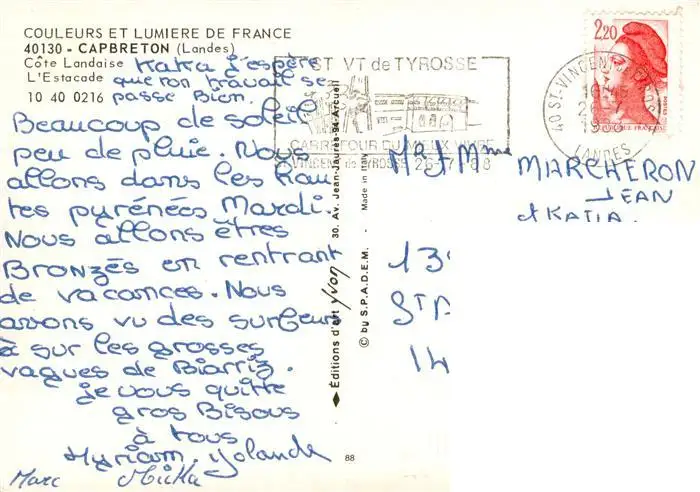 COULEURS ET LUMIERE DE FRANCE
40130 - CAPBRETON (Landes)
Côte Landaise
L'Estacade
10 40 0216
Kaka j'espère
que ton travail se
passe Bien.
Beaucoup de soleil
peu de pluie. Nous
allons dans les hau
tes pyrénées Mardi.
Nous allons êtres
Bronzés en rentrant
de vacances. Nous
avons vu des surfeur
à sur les grosses
vagues de Biarriz.
je vous quitte
gros Bisous
à tous
Myriam. Yolande
Marc
88
Editions d'art Yvon 30. Av. Jean-Jaurès-94-Arcueil
© by S.P.A.D.E.M. - Made in
ST VT de TYROSSE
CARREFOUR DU MIEUX VIVRE
ST VINCENT de TYROSSE 26-7-88
40 ST-VINCENT
LANDES
2,20
Mr et Mme MARCHERON
JEAN
et KATIA.
13
ST
14